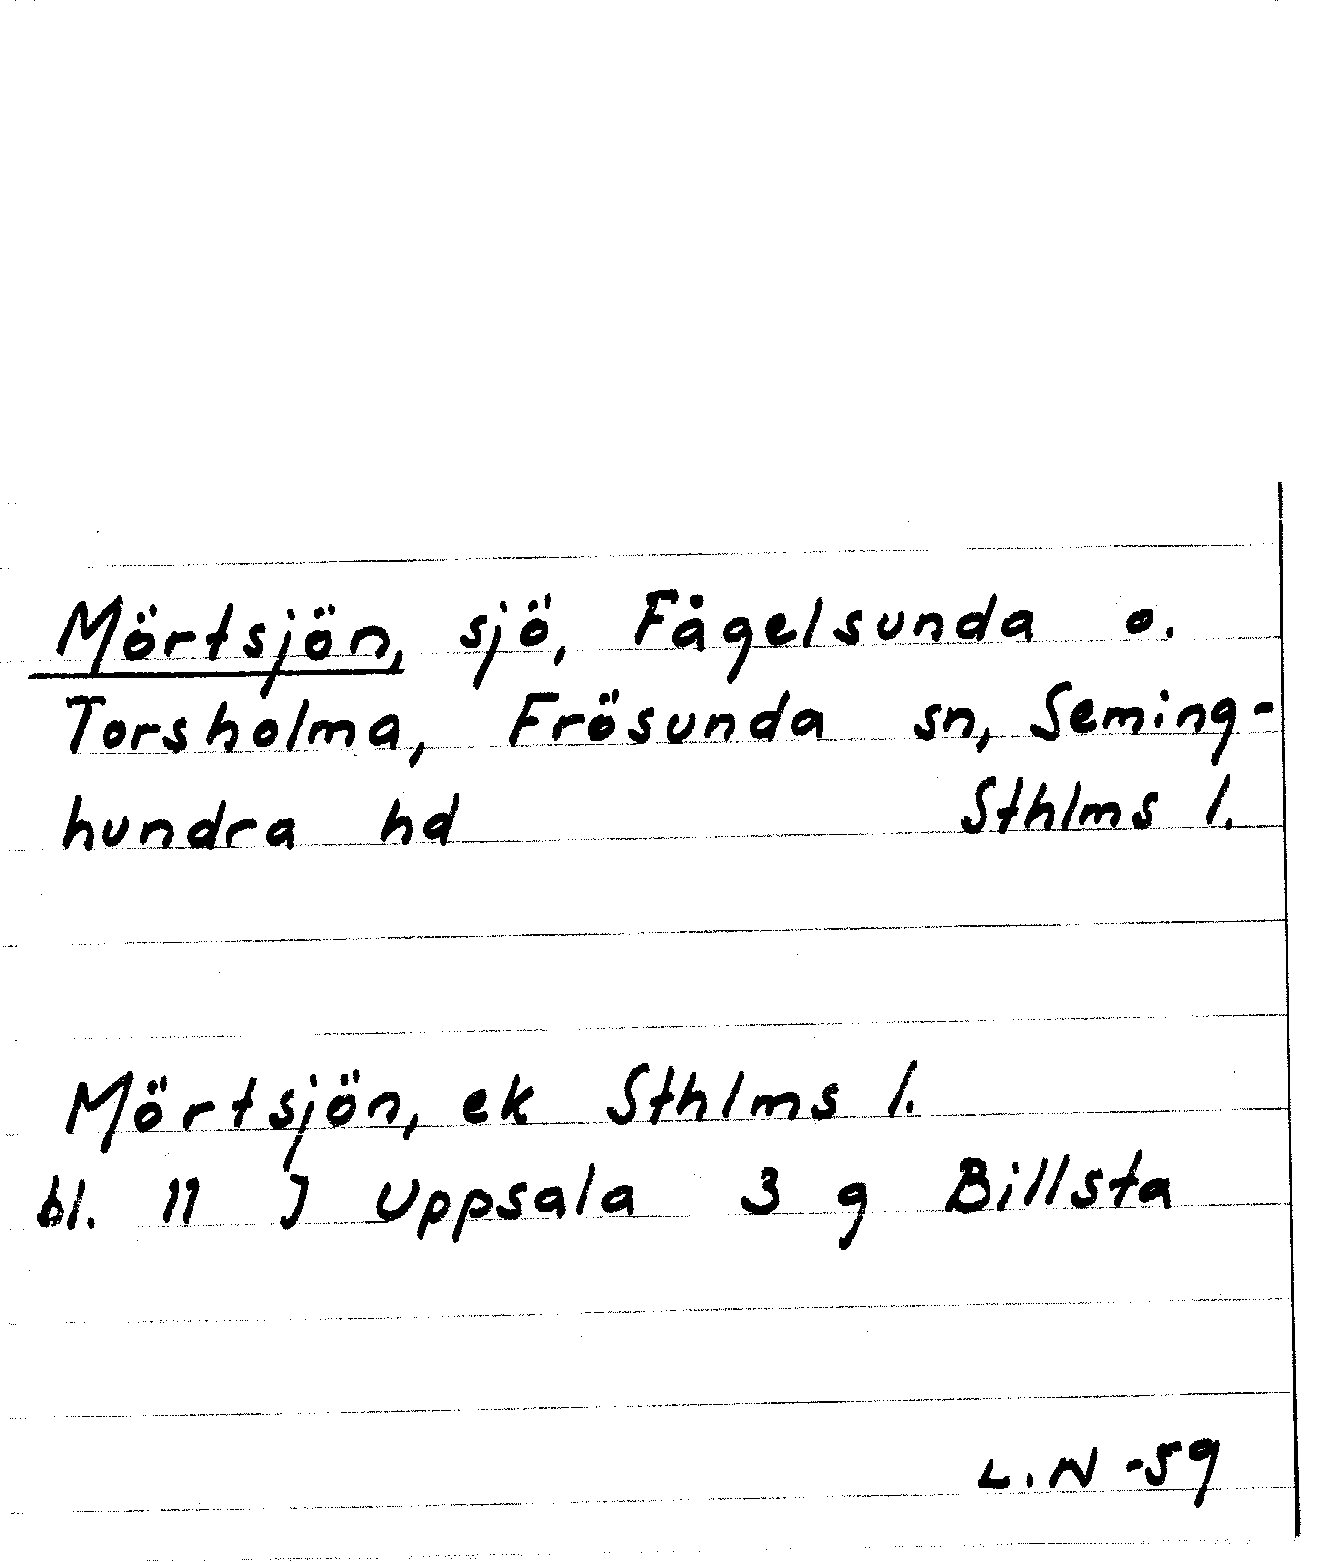 Mörtsjön, sjö, Fågelsunda o.
Torsholma, Frösunda sn, Seming-
hundra hd Sthlms l.
Mörtsjön, ek Sthlms l.
bl. 11 J Uppsala 3 g Billsta
L.N -59